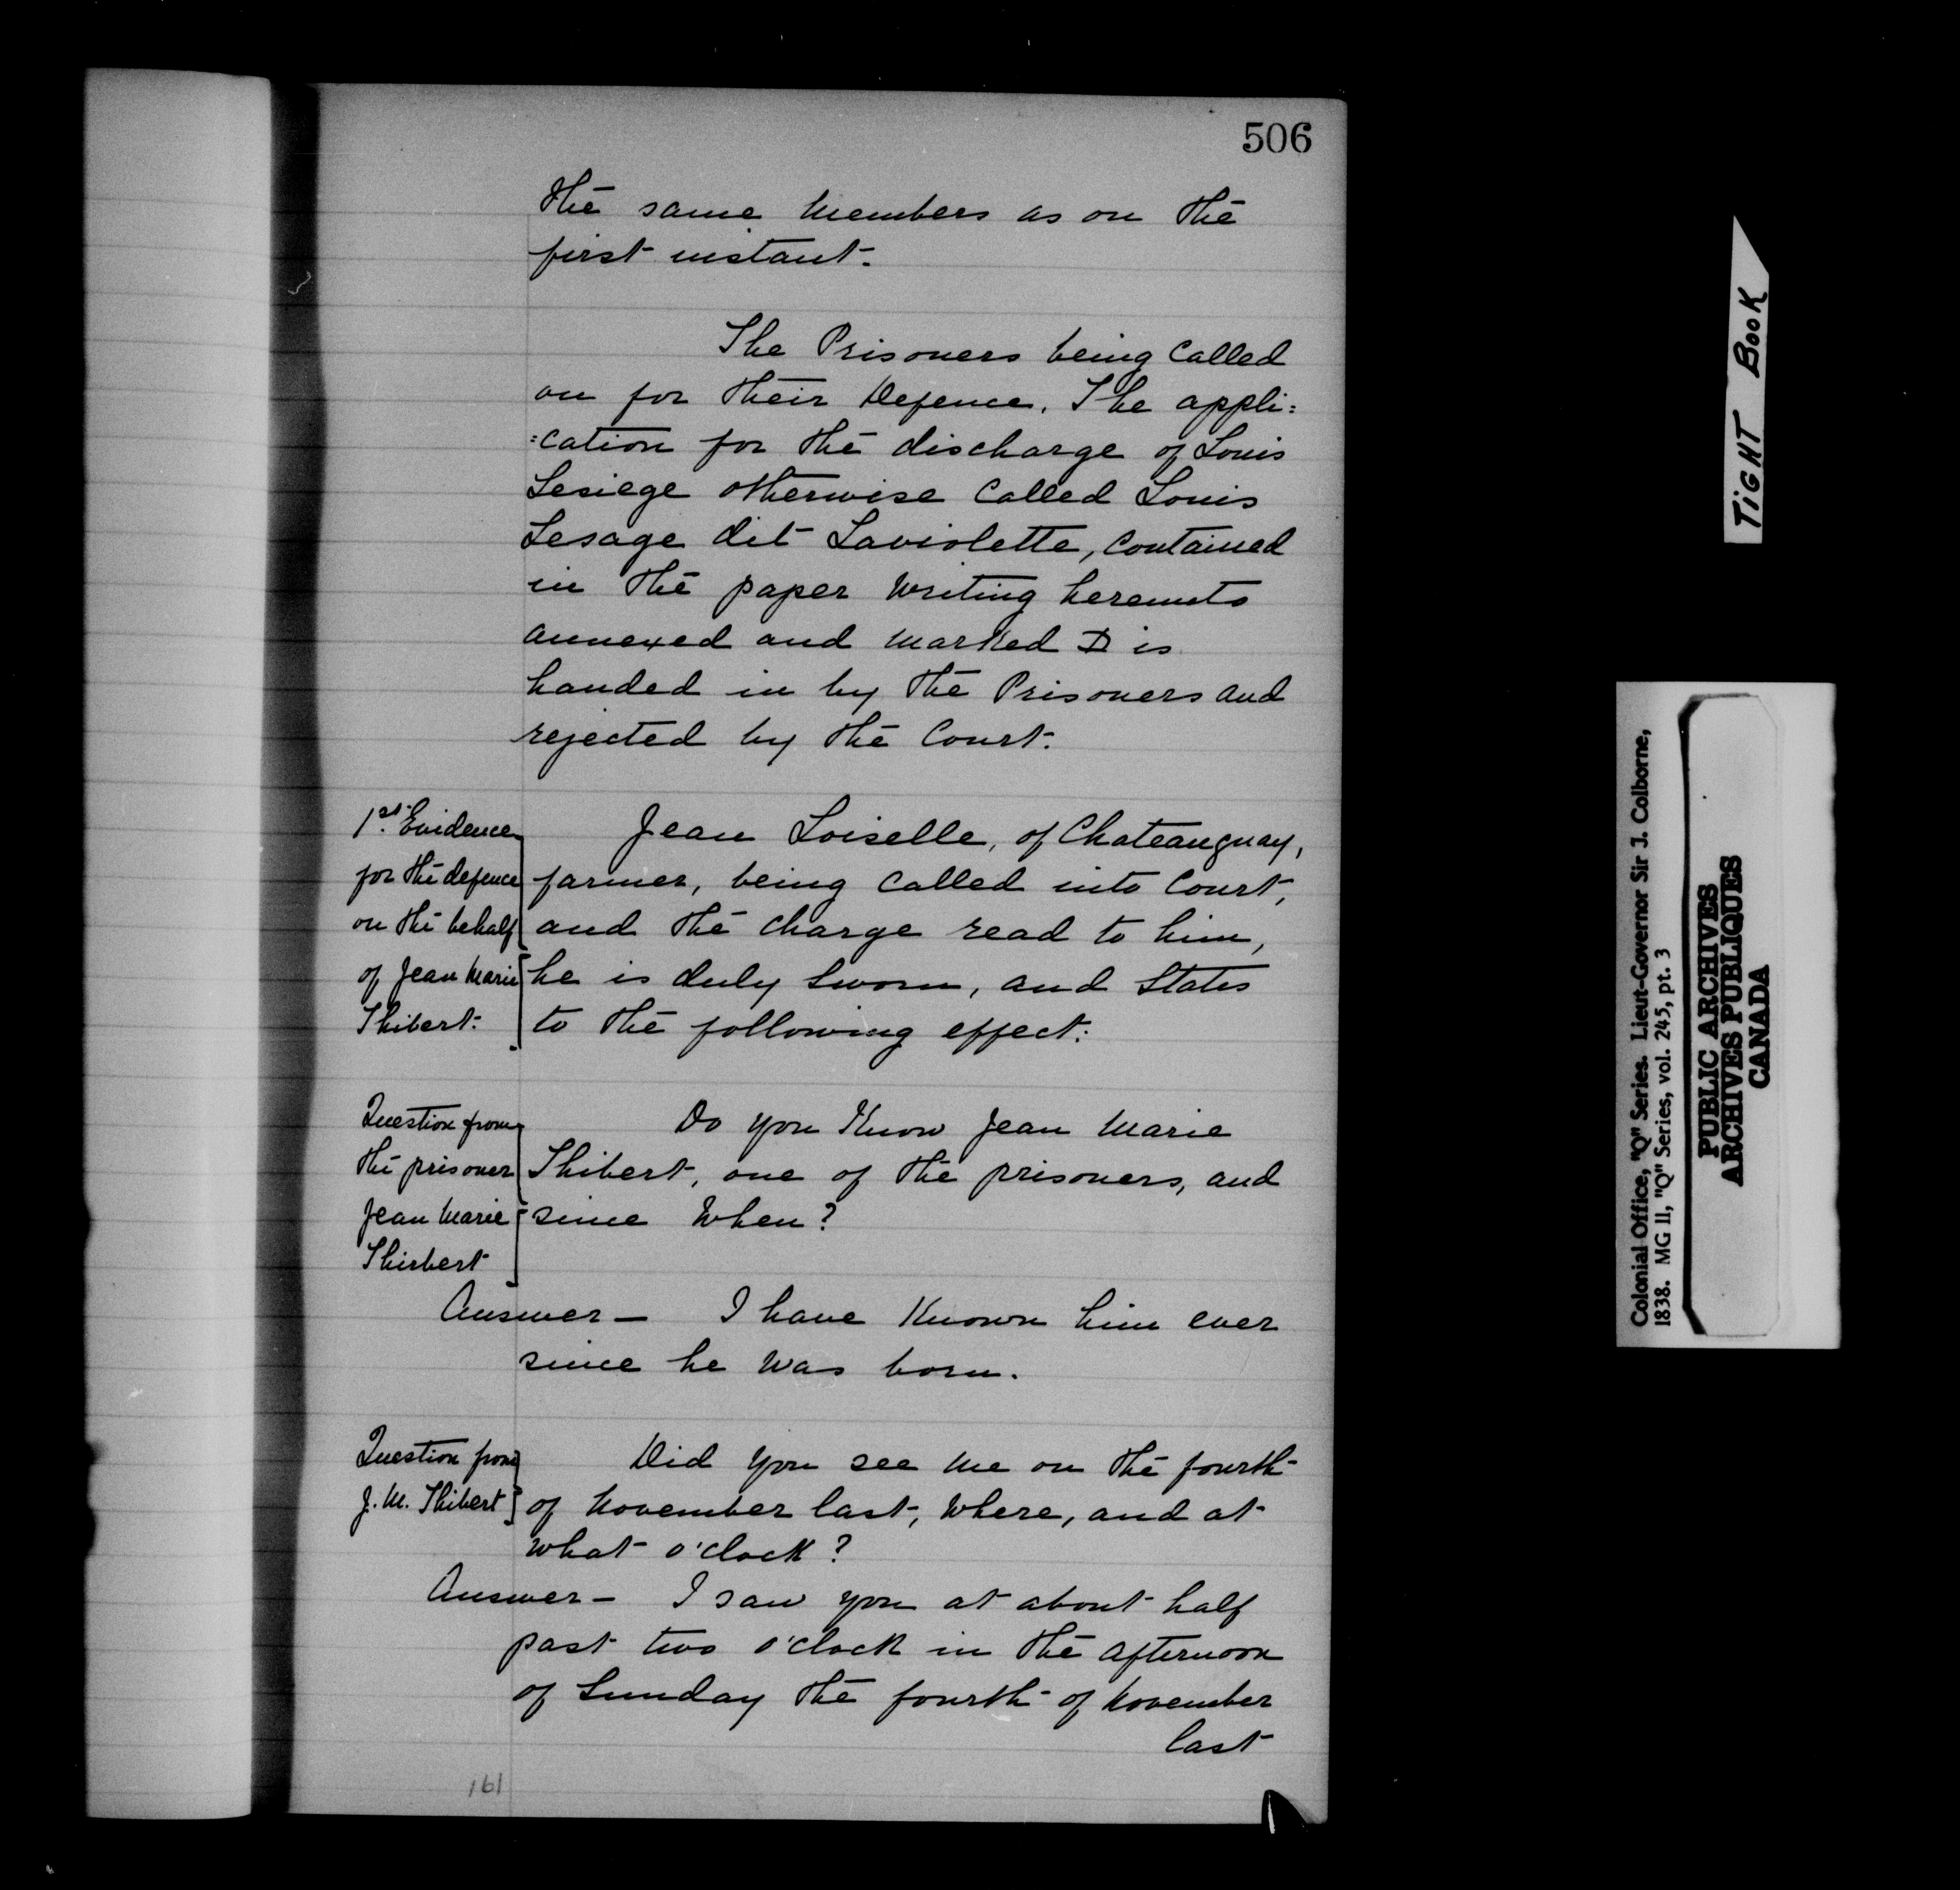 506
the same members as on the
first instant.
The Prisoners being called
on for their Defence. The appli=
=cation for the discharge of Louis
Lesiege otherwise called Louis
Lesage dit Laviolette, contained
in the paper writing hereunto
annexed and marked D is
handed in by the Prisoners and
rejected by the Court.
1st. Evidence
for the defence
on the behalf
of Jean Marie
Thibert.
Jean Loiselle, of Chateauguay,
farmer, being called into Court,
and the charge read to him,
he is duly sworn, and states
to the following effect:
Question from
the prisoner
Jean Marie
Thirbert
Do you Know Jean Marie
Thibert, one of the prisoners, and
since when?
Answer — I have Known him ever
since he was born.
Question from
J. M. Thibert
Did you see me on the fourth
of November last, where, and at
what o'clock?
Answer — I saw you at about half
past two o'clock in the afternoon
of Sunday the fourth of November
last
161
TIGHT BOOK
Colonial Office, "Q" Series. Lieut-Governor Sir J. Colborne,
1838. MG 11, "Q" Series, vol. 245, pt. 3
PUBLIC ARCHIVES
ARCHIVES PUBLIQUES
CANADA